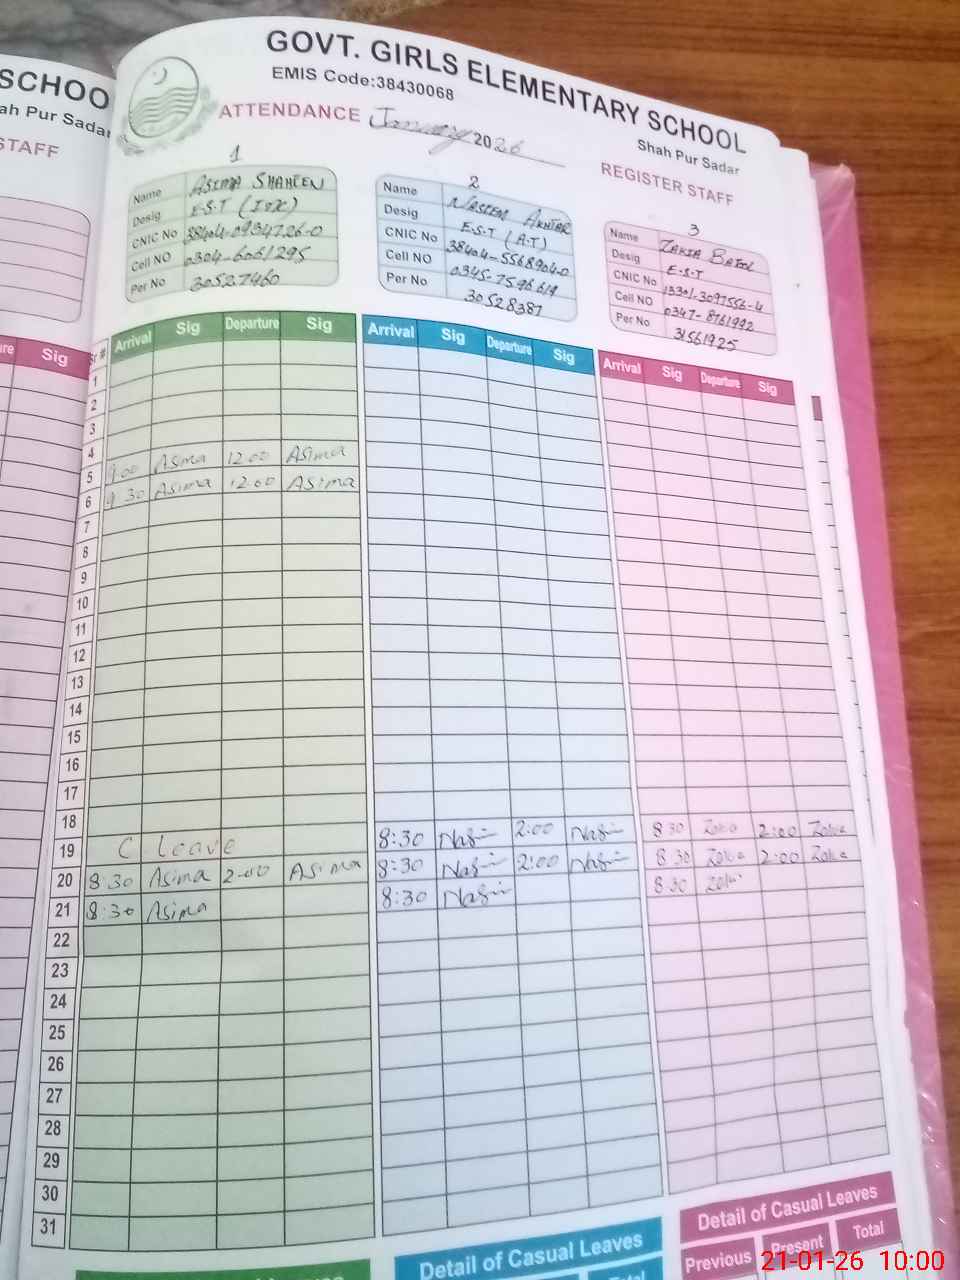 SCHOO
ah Pur Sadar
STAFF
Sig
GOVT. GIRLS ELEMENTARY SCHOOL
EMIS Code:38430068
Shah Pur Sadar
ATTENDANCE January 2026
REGISTER STAFF
1
Name ASIMA SHAHEEN
Desig E.S.T
CNIC No 38404-0934726-0
Cell NO 0304-6061295
Per No 30527460
2
Name NASEEM AKHTAR
Desig E.S.T (A.T)
CNIC No 38404-5568904-0
Cell NO 0345-7596619
Per No 30528387
3
Name ZAKIA BATOOL
Desig E.S.T
CNIC No
Cell NO 0347-8761992
Per No 31561925
Sr # Arrival Sig Departure Sig Arrival Sig Departure Sig Arrival Sig Departure Sig
1
2
3
4
5 9 00 Asima 12 00 Asima
6 9 30 Asima 12 00 Asima
7
8
9
10
11
12
13
14
15
16
17
18
19 C Leave 8:30 2:00 8 30 2:00
20 8 30 Asima 2-00 Asima 8:30 2:00 8 30 2:00
21 8:30 Asima 8:30 8 30
22
23
24
25
26
27
28
29
30
31
Detail of Casual Leaves
Detail of Casual Leaves
Previous Present Total
21-01-26 10:00